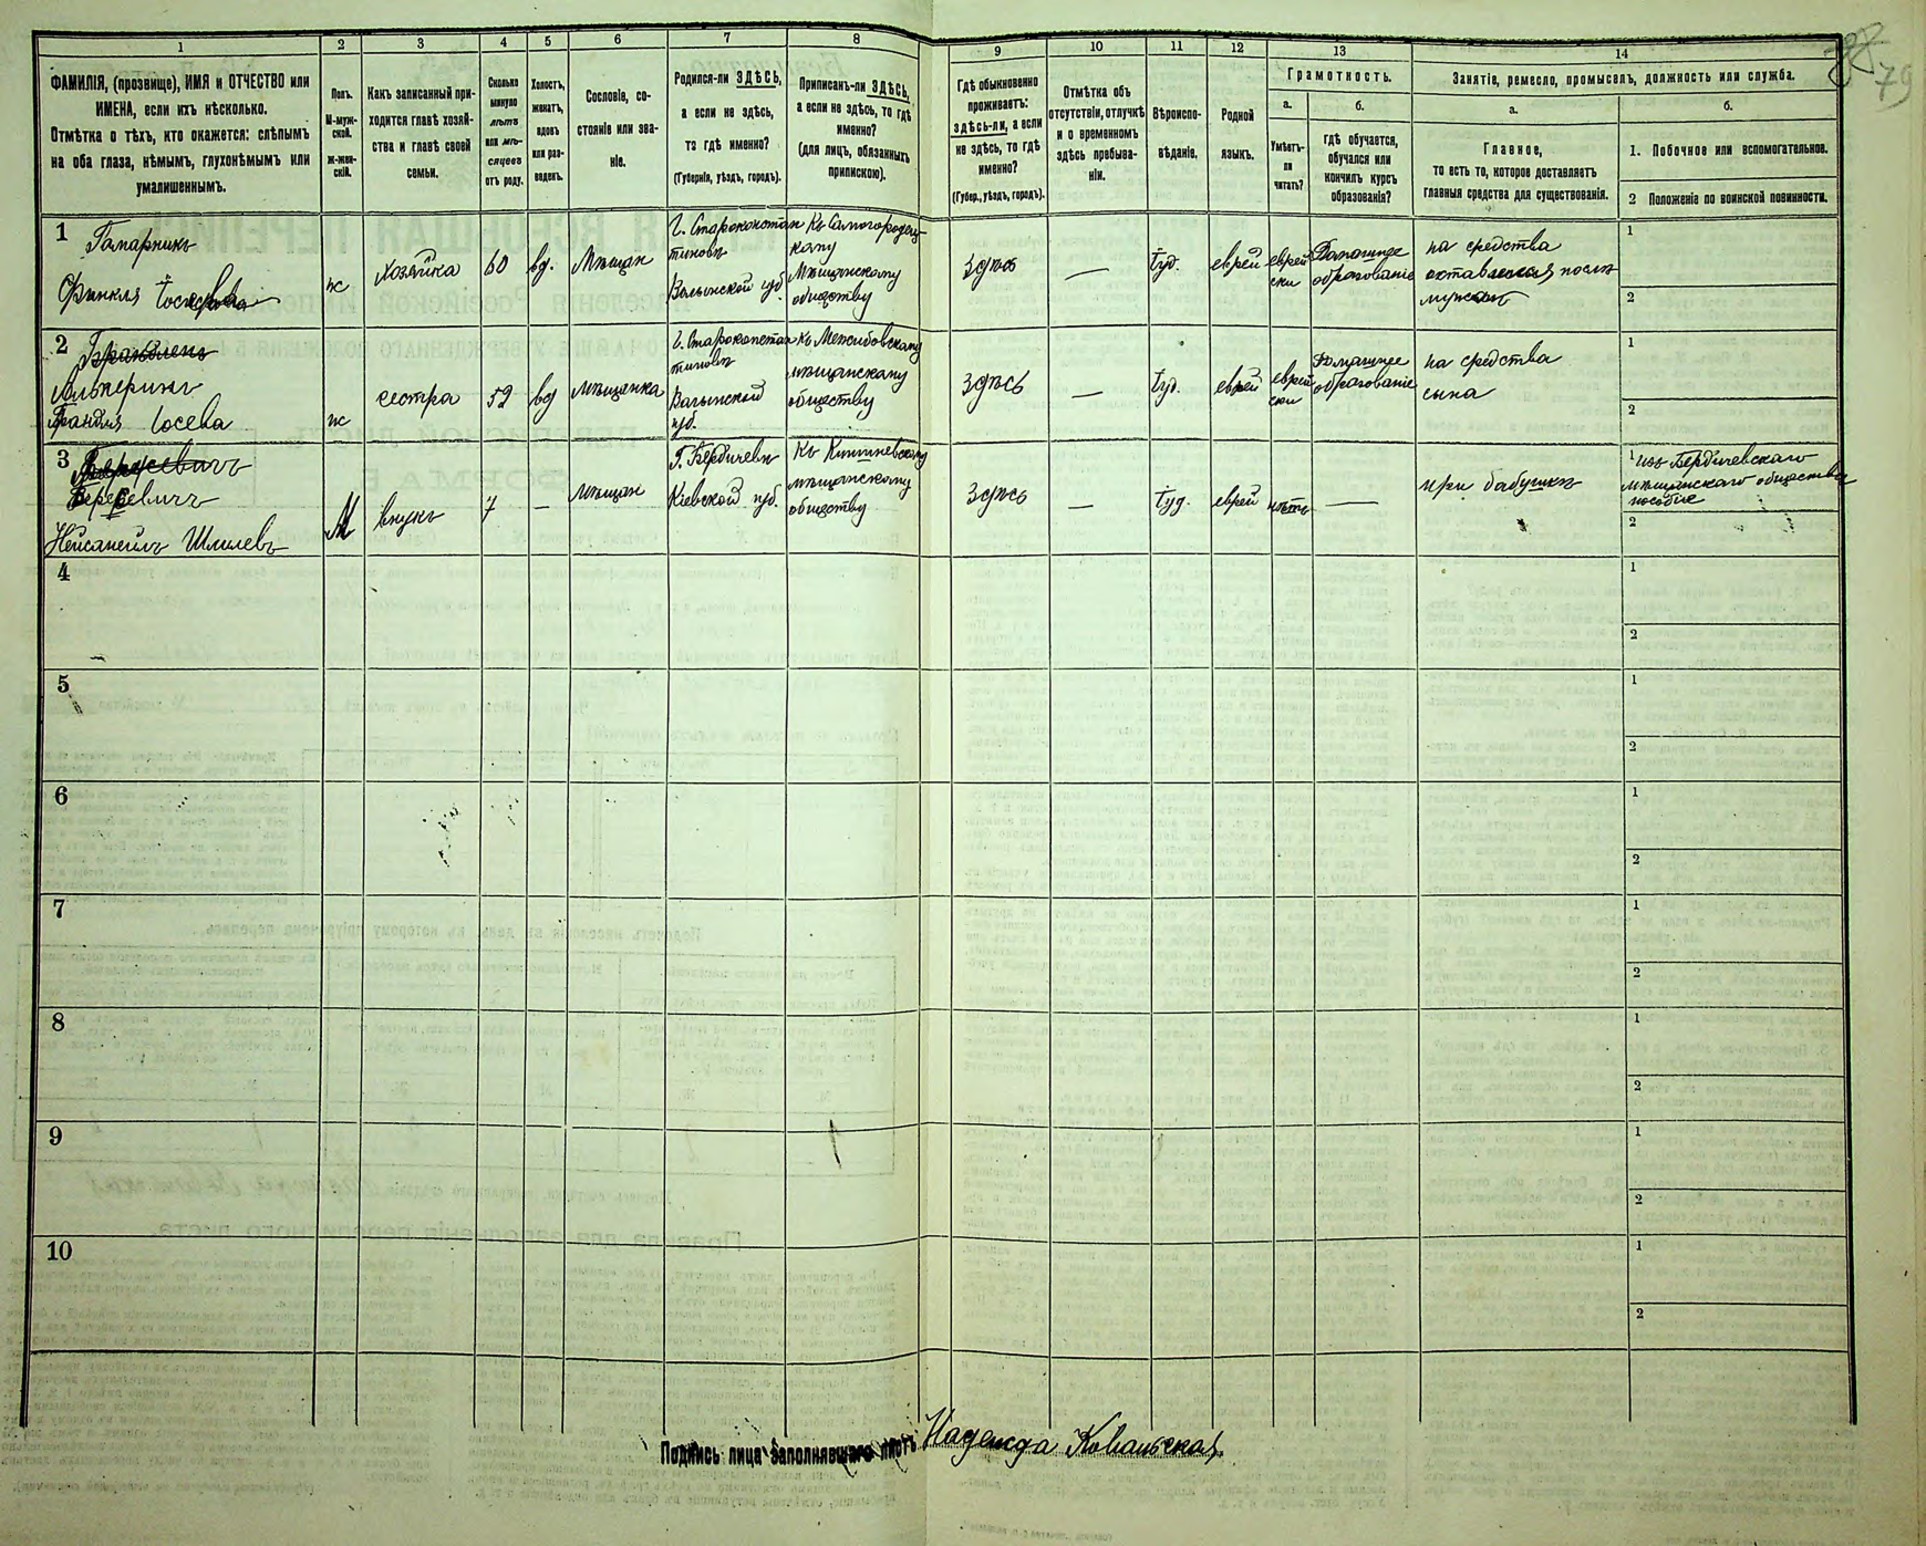 1 2 3 4 5 6 7 8 9 10 11 12 13 14
79
ФАМИЛІЯ, (прозвище), ИМЯ и ОТЧЕСТВО или
ИМЕНА, если ихъ нѣсколько.
Отмѣтка о тѣхъ, кто окажется: слѣпымъ
на оба глаза, нѣмымъ, глухонѣмымъ или
умалишеннымъ.
Полъ.
М-муж-
ской.
ж-жен-
скій.
Какъ записанный при-
ходится главѣ хозяй-
ства и главѣ своей
семьи.
Сколько
минуло
лѣтъ
или мѣ-
сяцевъ
отъ роду.
Холостъ,
женатъ,
вдовъ
или раз-
веденъ.
Сословіе, со-
стояніе или зва-
ніе.
Родился-ли ЗДѢСЬ,
а если не здѣсь,
то гдѣ именно?
(Губернія, уѣздъ, городъ).
Приписанъ-ли ЗДѢСЬ,
а если не здѣсь, то гдѣ
именно?
(для лицъ, обязанныхъ
припискою).
Гдѣ обыкновенно
проживаетъ:
здѣсь-ли, а если
не здѣсь, то гдѣ
именно?
(Губер., уѣздъ, городъ).
Отмѣтка объ
отсутствіи, отлучкѣ
и о временномъ
здѣсь пребыва-
ніи.
Вѣроиспо-
вѣданіе.
Родной
языкъ.
Грамотность.
а.
Умѣетъ-
ли
читать?
б.
гдѣ обучается,
обучался или
кончилъ курсъ
образованія?
Занятіе, ремесло, промыселъ, должность или служба.
а.
Главное,
то есть то, которое доставляетъ
главныя средства для существованія.
б.
1. Побочное или вспомогательное.
2 Положеніе по воинской повинности.
1
Гамарникъ
Фрынкля Іосева
ж
хозяйка
60
вд.
Мѣщан
Г. Староконстан
тиновъ
Волынской губ.
Къ Самогородец
кому
Мѣщанскому
обществу
здѣсь
—
Іуд.
еврей
еврей
ски
Домашнее
образованіе
на средства
оставшияся послѣ
мужа
1
2
2
Альперинъ
Брандля Іосева
ж
сестра
52
вд
мѣщанка
Г. Староконстан
тиновъ
Волынской
губ.
Къ Межибовскому
мѣщанскому
обществу
здѣсь
—
Іуд.
еврей
еврей
ски
Домашнее
образованіе
на средства
сына
1
2
3
Берхевичъ
Нейсанейлъ Шлилевъ
М
внукъ
7
—
мѣщан
Г. Бердичевъ
Кіевской губ.
Къ Кишиневскому
мѣщанскому
обществу
здѣсь
—
Іуд.
еврей
нѣтъ
—
при бабушкѣ
1 Изъ Бердичевскаго
мѣщанскаго общества
пособіе
2
4
1
2
5
1
2
6
1
2
7
1
2
8
1
2
9
1
2
10
1
2
Подпись лица заполнявшаго листъ Надежда Ковальская